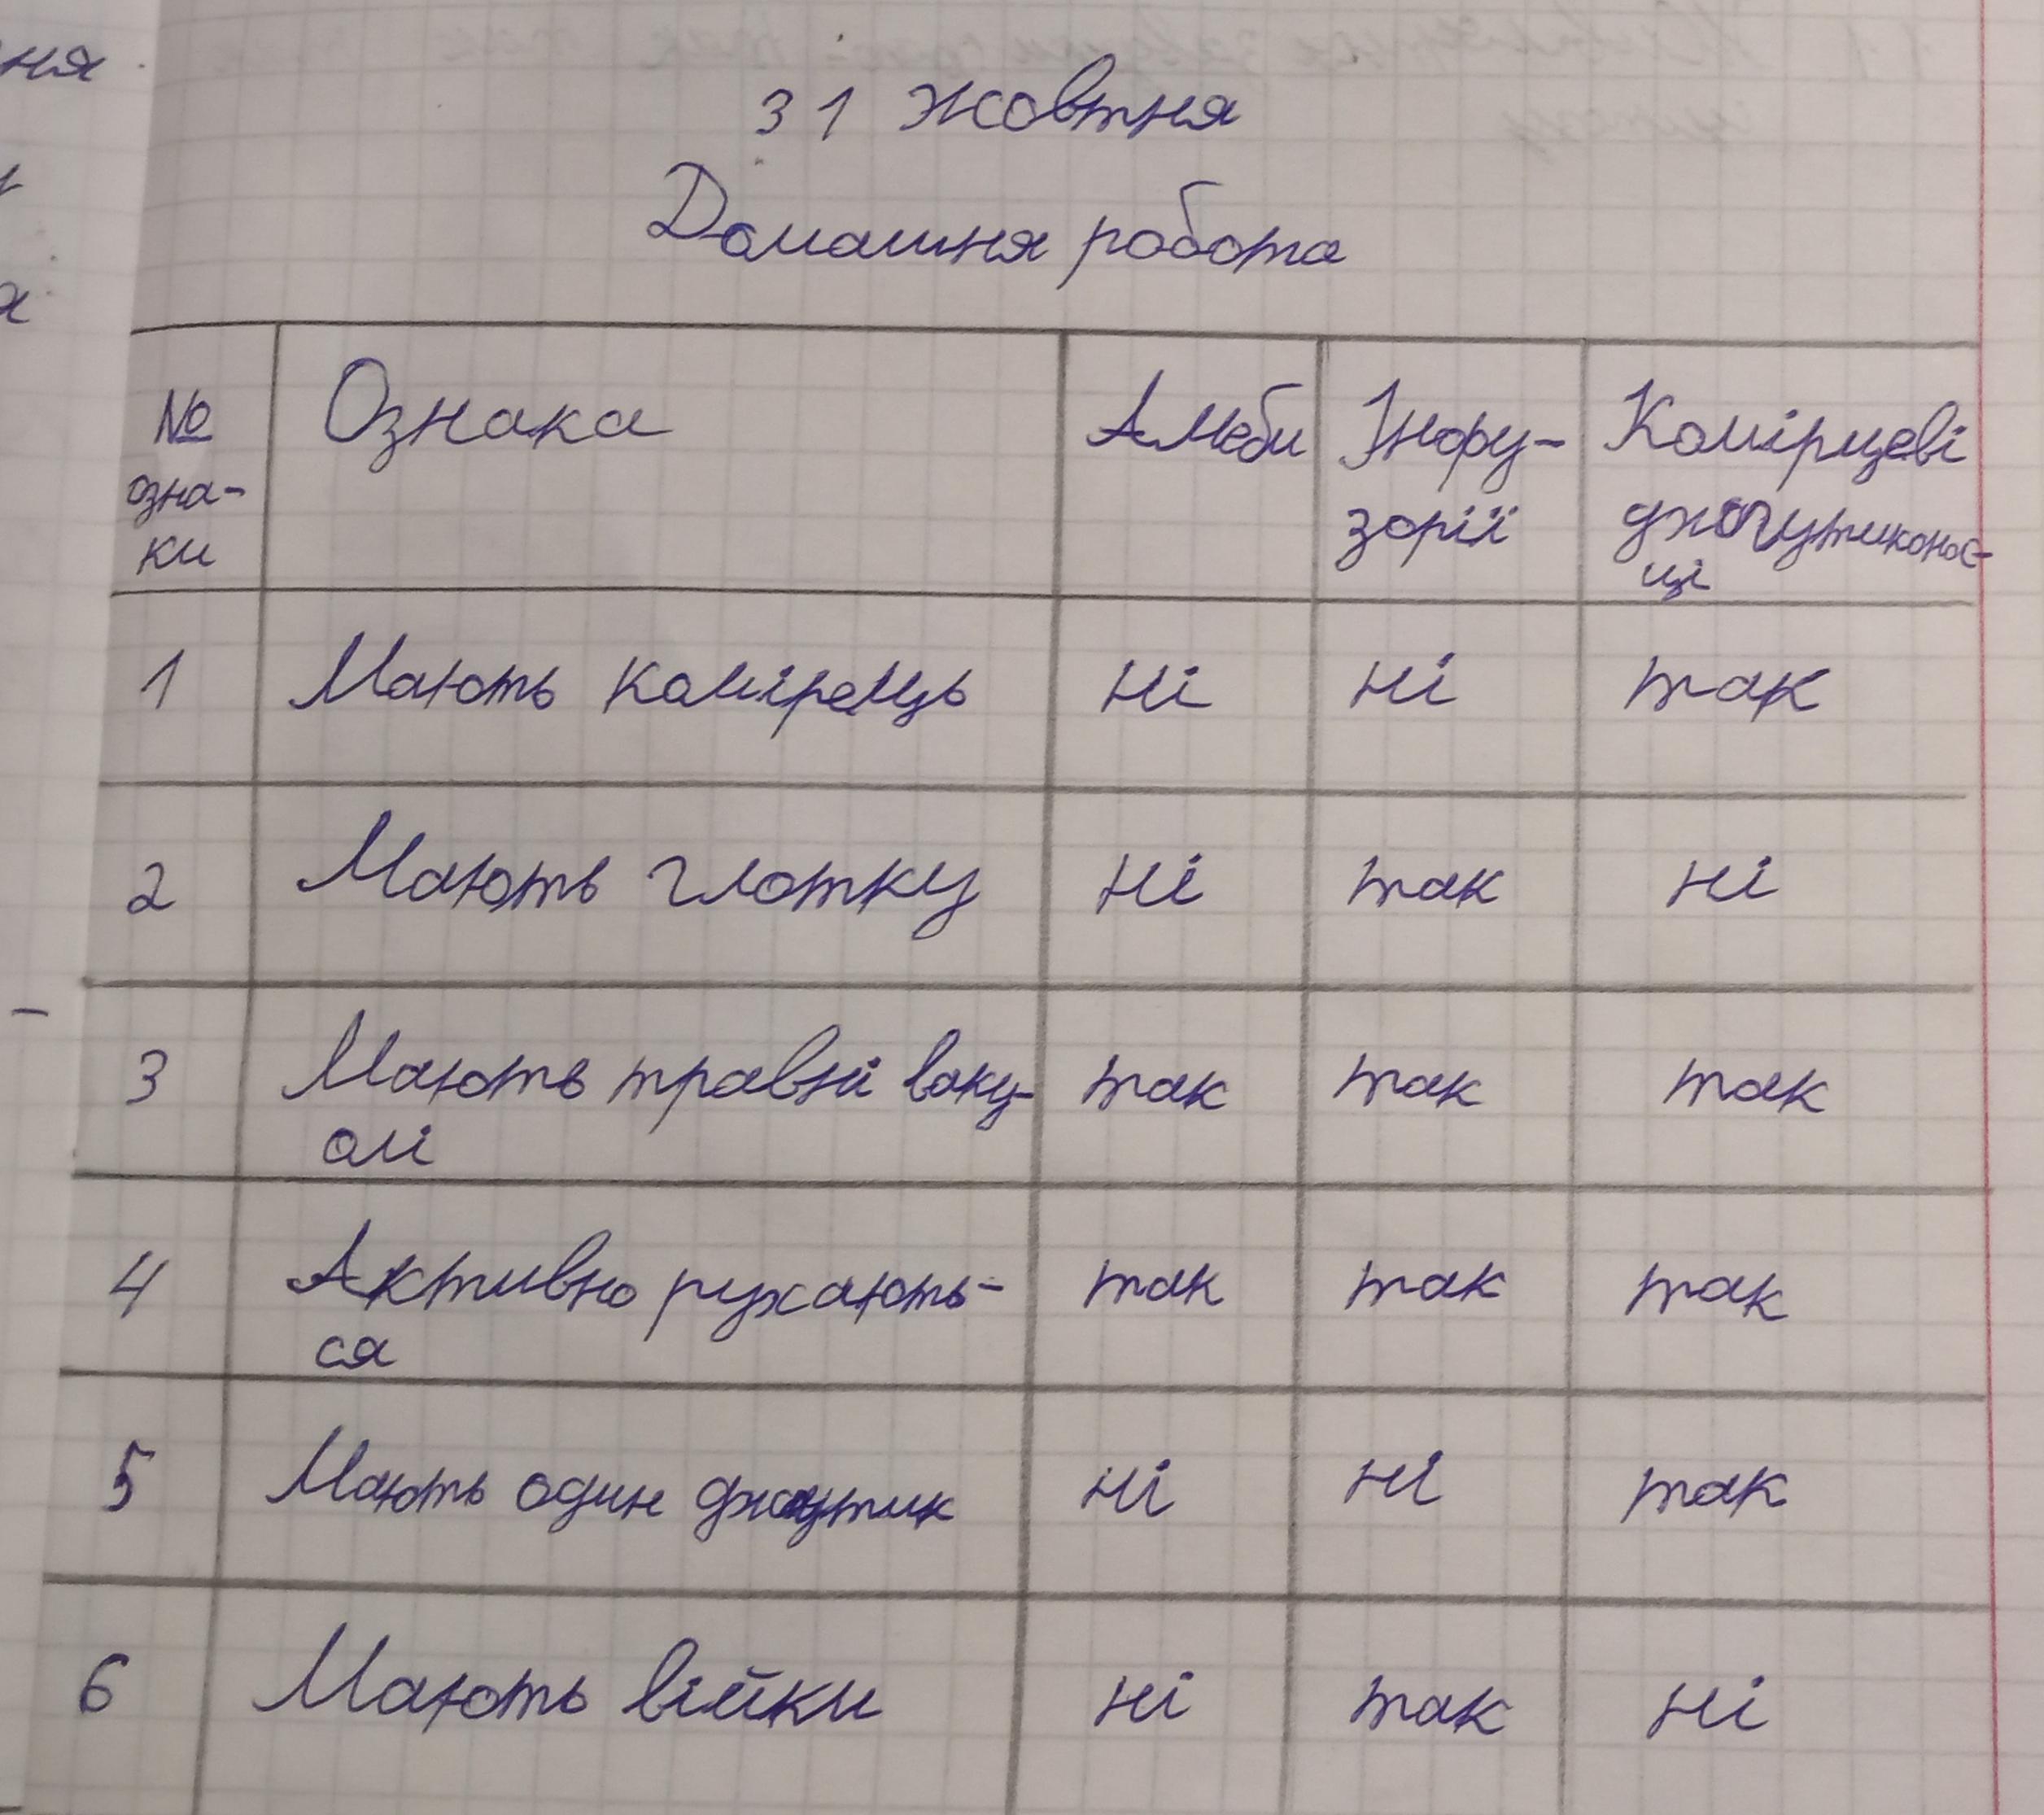 ня
31 жовтня
Домашня робота
№ озна-
ки
Ознака
Амеби
Інфу-
зорії
Комірцеві
джгутиконос-
ці
1 Мають комірець ні ні так
2 Мають глотку ні так ні
3 Мають травні ваку- так так так
олі
4 Активно рухають- так так так
ся
5 Мають один джгутик ні ні так
6 Мають війки ні так ні